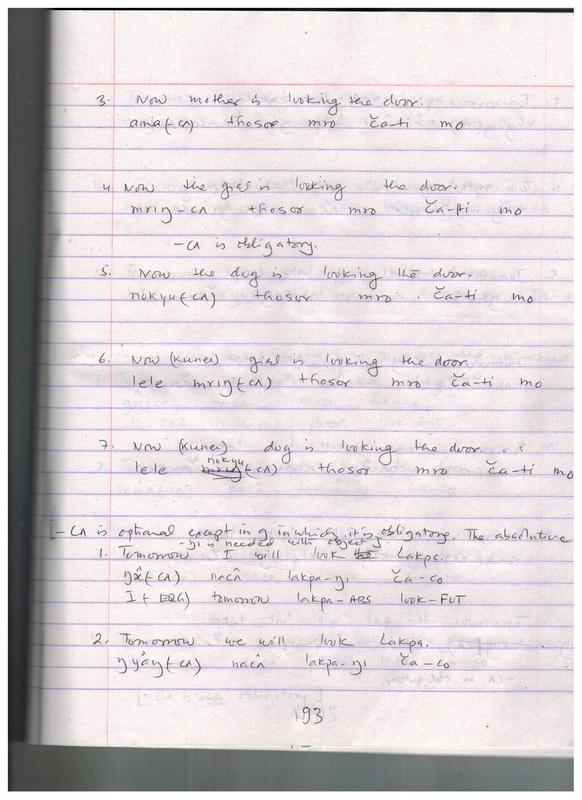 3. Now mother is looking the door.
ama(-cʌ) thosor mro ča-ti mo
4. Now the girl is looking the door.
mrɪŋ-cʌ thosor mro ča-ti mo
-cʌ is obligatory.
5. Now the dog is looking the door.
nokyu(-cʌ) thosor mro ča-ti mo
6. Now (Kunei) girl is looking the door.
lele mrɪŋ(-cʌ) thosor mro ča-ti mo
7. Now (Kunei) dog is looking the door.
lele nokyu(-cʌ) thosor mro ča-ti mo
[-cʌ is optional except in ŋ in which it is obligatory. The absolutive
-ŋi is needed with object]
1. Tomorrow I will look Lakpa.
(-cʌ) nacʌ̂ lakpa-ŋi ča-co
I(+ERG) tomorrow lakpa-ABS look-FUT
2. Tomorrow we will look Lakpa.
ŋyâŋ(-cʌ) nacʌ̂ lakpa-ŋi ča-co
193